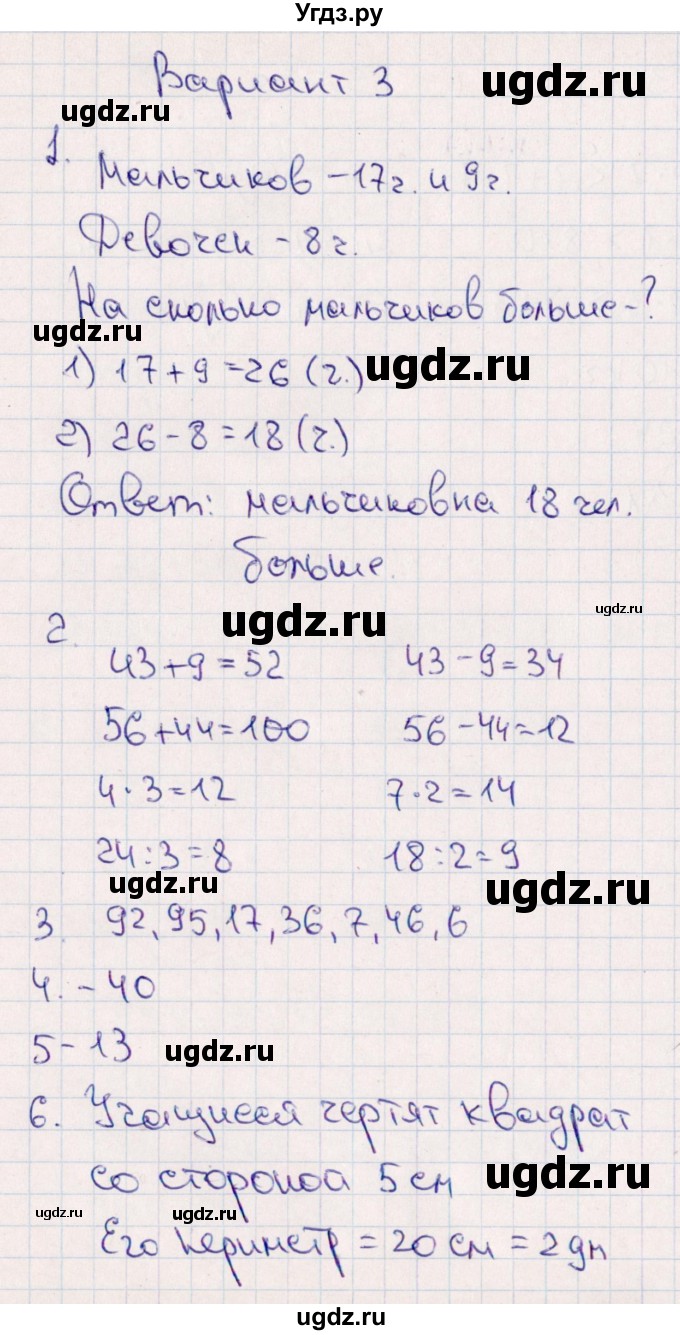 Угдз.ру
Вариант 3
ugdz.ru
ugdz.ru
1. Мальчиков - 17 ч. и 9 ч.
Девочек - 8 ч.
На сколько мальчиков больше - ?
ugdz.ru
1) 17 + 9 = 26 (ч.)
ugdz.ru
2) 26 - 8 = 18 (ч.)
Ответ: мальчиков на 18 чел.
больше.
ugdz.ru
ugdz.ru
2.
43 + 9 = 52 43 - 9 = 34
56 + 44 = 100 56 - 44 = 12
4 · 3 = 12 7 · 2 = 14
24 : 3 = 8 18 : 2 = 9
ugdz.ru
ugdz.ru
3. 92, 95, 17, 36, 7, 46, 6
4. - 40
5 - 13
ugdz.ru
6. Учащиеся чертят квадрат
со стороной 5 см
ugdz.ru
ugdz.ru
ugdz.ru
Его периметр = 20 см = 2 дм
ugdz.ru